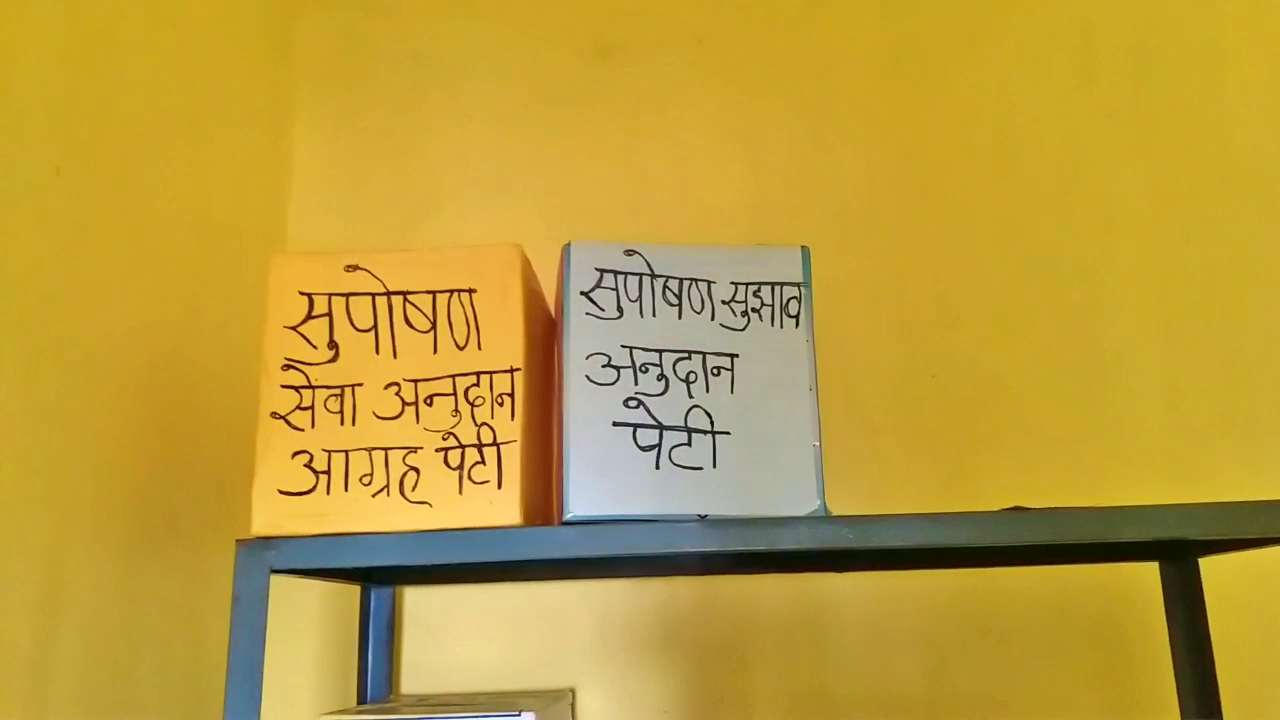 सुपोषण
सेवा अनुदान
आग्रह पेटी
सुपोषण सुझाव
अनुदान
पेटी